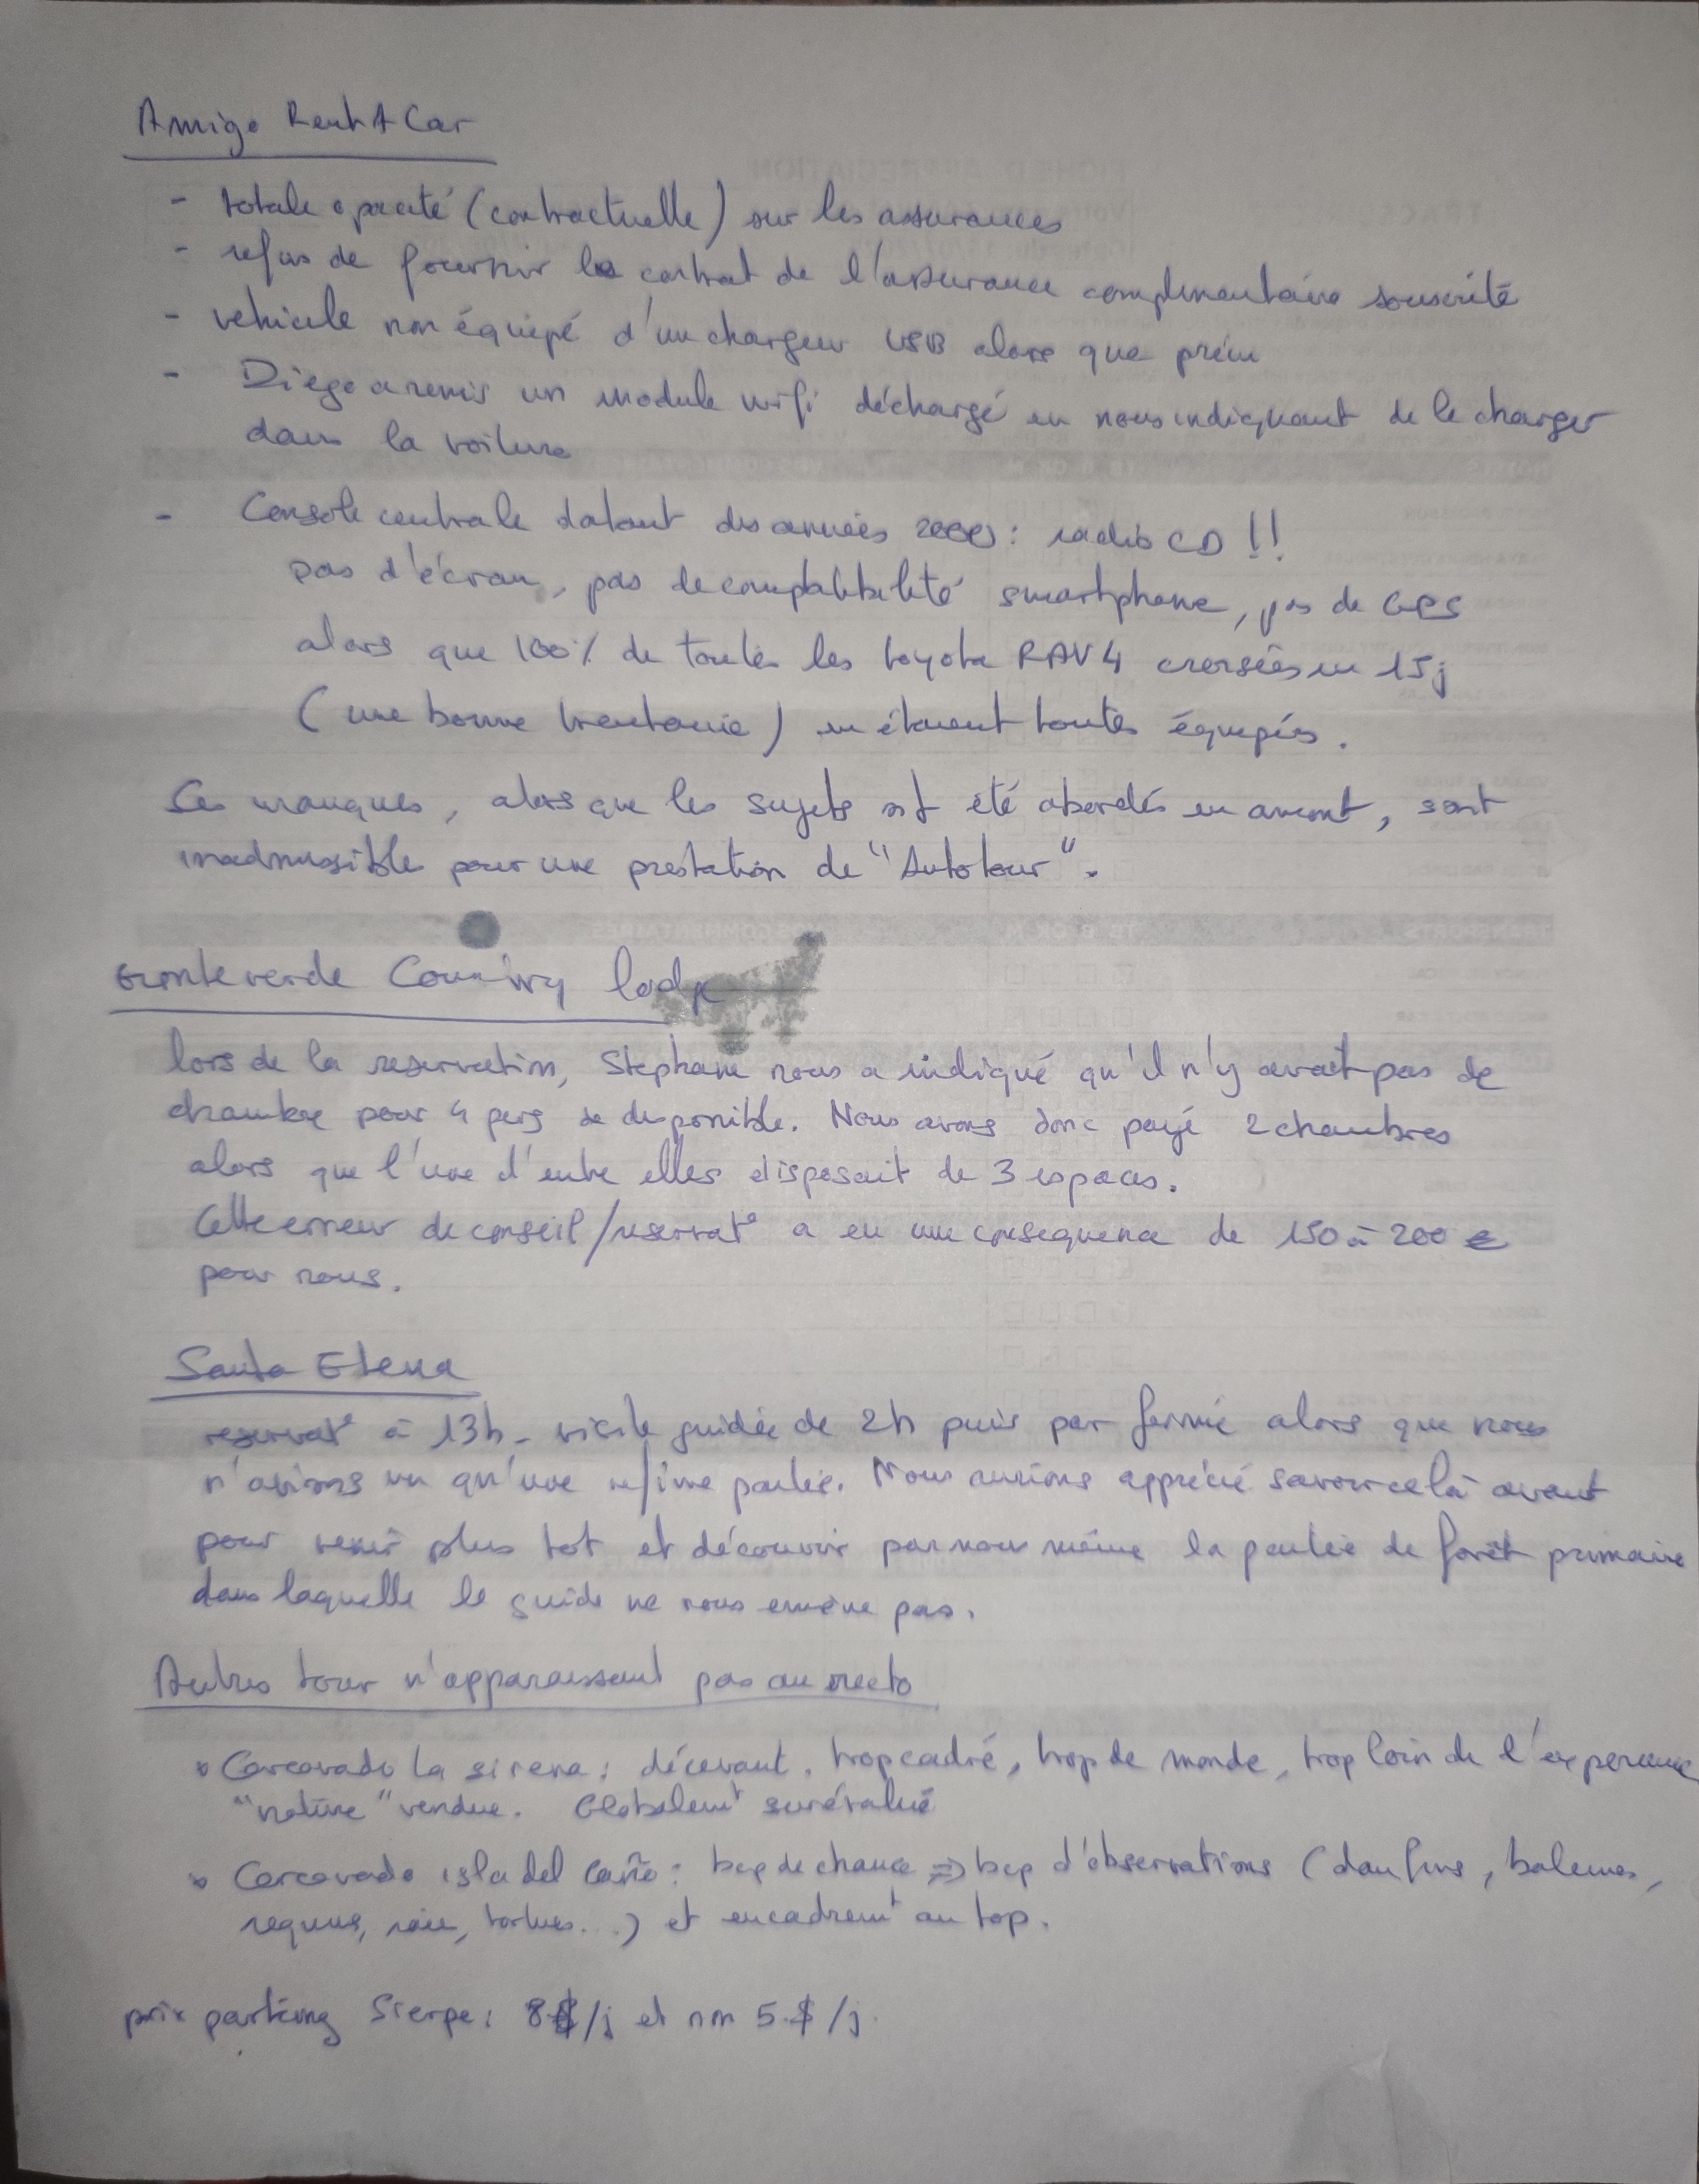 Amigo Rent A Car
- totale opacité (contractuelle) sur les assurances
- refus de fournir le contrat de l'assurance complémentaire souscrite
- vehicule non équipé d'un chargeur USB alors que prévu
- Diego a remis un module wifi déchargé en nous indiquant de le charger
dans la voiture
- Console centrale datant des années 2000 : radio CD !!
pas d'écran, pas de compatibilité smartphone, pas de GPS
alors que 100% de toutes les toyota RAV4 croisées en 15j
(une bonne trentaine) en étaient toutes équipées.
Ces manques, alors que les sujets ont été abordés en amont, sont
inadmissibles pour une prestation de "Autotour".
Monteverde Country lodge
lors de la reservation, Stephane nous a indiqué qu'il n'y avait pas de
chambre pour 4 pers de disponible. Nous avons donc payé 2 chambres
alors que l'une d'entre elles disposait de 3 espaces.
Cette erreur de conseil/reservat° a eu une consequence de 150 à 200 €
pour nous.
Santa Elena
reservat° à 13h - visite guidée de 2h puis parc fermé alors que nous
n'avions vu qu'une infime partie. Nous aurions apprécié savoir celà avant
pour venir plus tot et découvrir par nous même la partie de forêt primaire
dans laquelle le guide ne nous emène pas.
Autres tour n'apparaissant pas au recto
Corcovado La sirena : décevant. trop cadré, trop de monde, trop loin de l'experience
"nature" vendue. Globalemt surévalué
Corcovado isla del Caño : bcp de chance => bcp d'observations (daufins, baleines,
requins, raie, tortues...) et encadremt au top.
prix parking Sierpe : 8$/j et non 5$/j